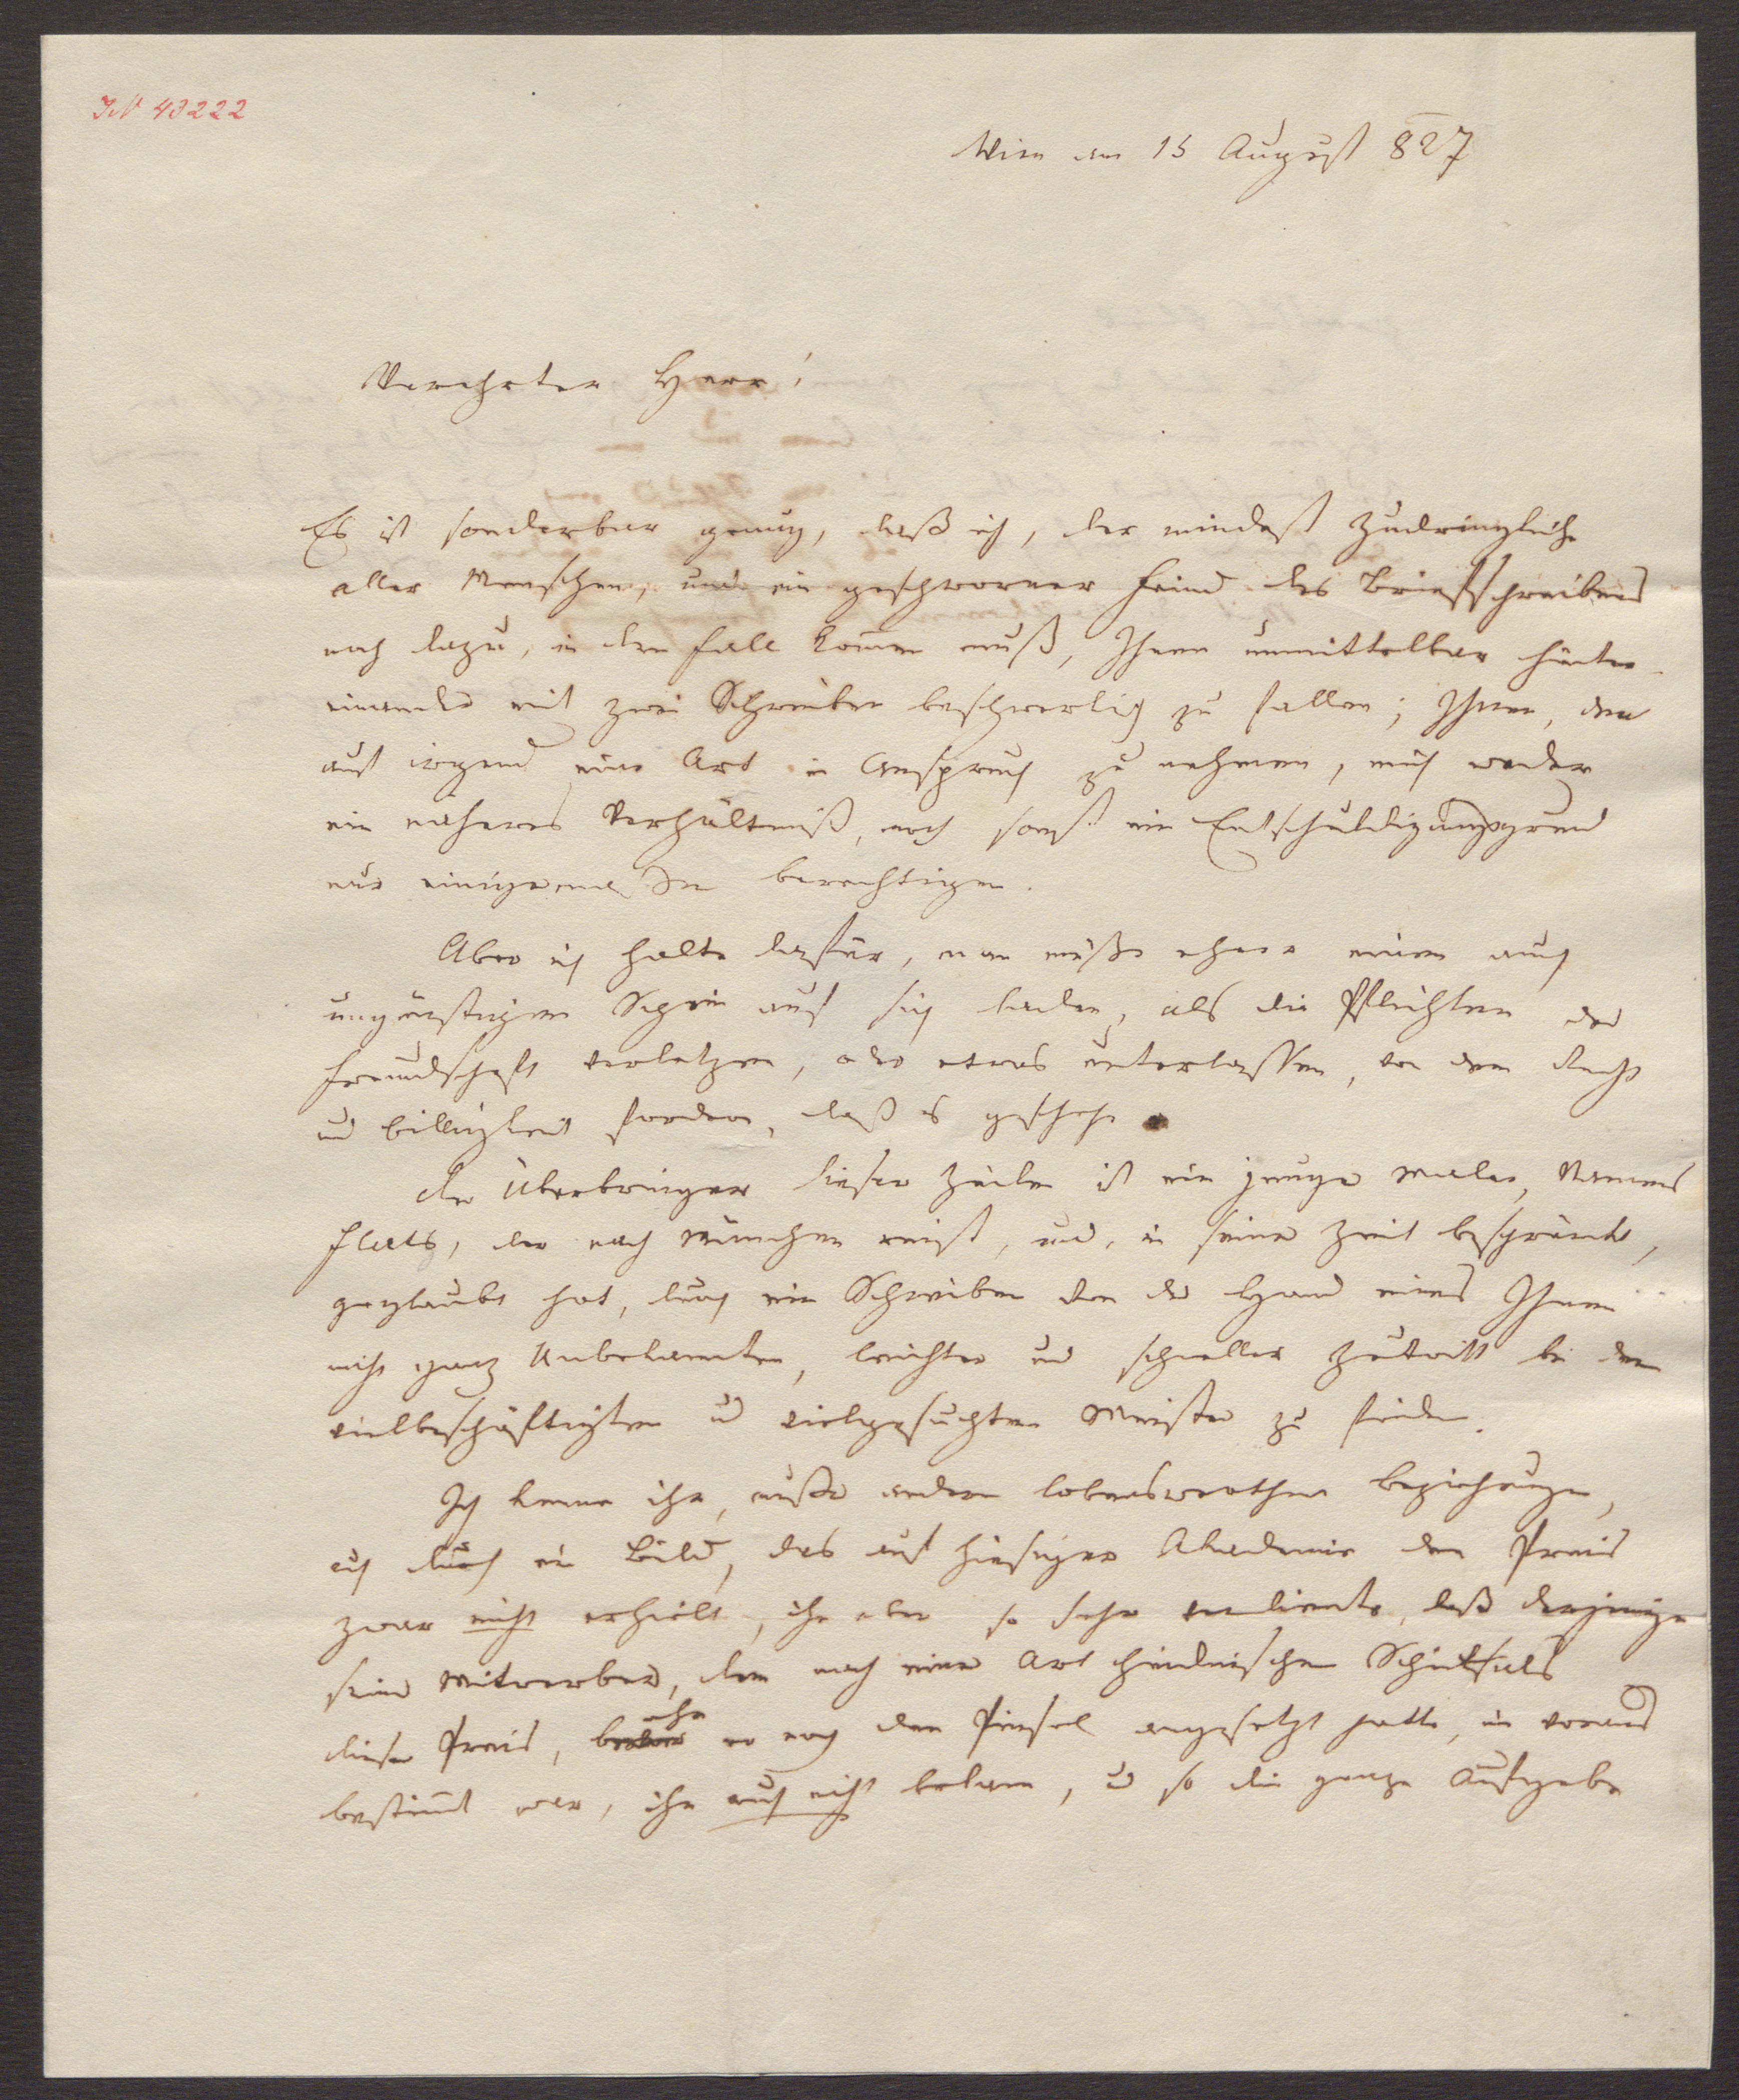 IN 43222
Wien am 15 August 827
Verehrter Herr!
Es ist sonderbar genug, daß ich, der mindest zudringliche
aller Menschen, und ein geschworner Feind des Briefschreibens
noch dazu, in den Fall kom̅en muß, Ihnen unmittelbar hinter
einander mit zwei Schreiben beschwerlich zu fallen; Ihnen, den
auf irgend eine Art in Anspruch zu nehmen, mich weder
ein näheres Verhältniß, noch sonst ein Entschuldigungsgrund
nur einigermaßen berechtigen.
Aber ich halte dafür, man müße eher einen auch
ungünstigen Schein auf sich laden, als die Pflichten der
Freundschaft verletzen, oder etwas unterlassen, von dem Recht
und Billigkeit fordern, daß es geschehe
Der Überbringer dieser Zeilen ist ein junger Maler, Namens
Flatz, der nach München reist, und, in seiner Zeit beschränkt,
geglaubt hat, durch ein Schreiben von der Hand eines Ihnen
nicht ganz Unbekannten, leichter und schneller Zutritt bei dem
vielbeschäftigten und vielgesuchten Meister zu finden.
Ich kenne ihn, außer andern lobenswerthen Beziehungen,
auch durch ein Bild, das auf hiesiger Akademie den Preis
zwar nicht erhielt, ihn aber so sehr verdiente, daß derjenige
seiner Mitwerber, dem nach einer Art heidnischen Schicksals
dieser Preis, bevor ehe er noch den Pinsel angesetzt hatte, im voraus
bestim̅t war, ihn auch nicht bekam, und so die ganze Aufgabe